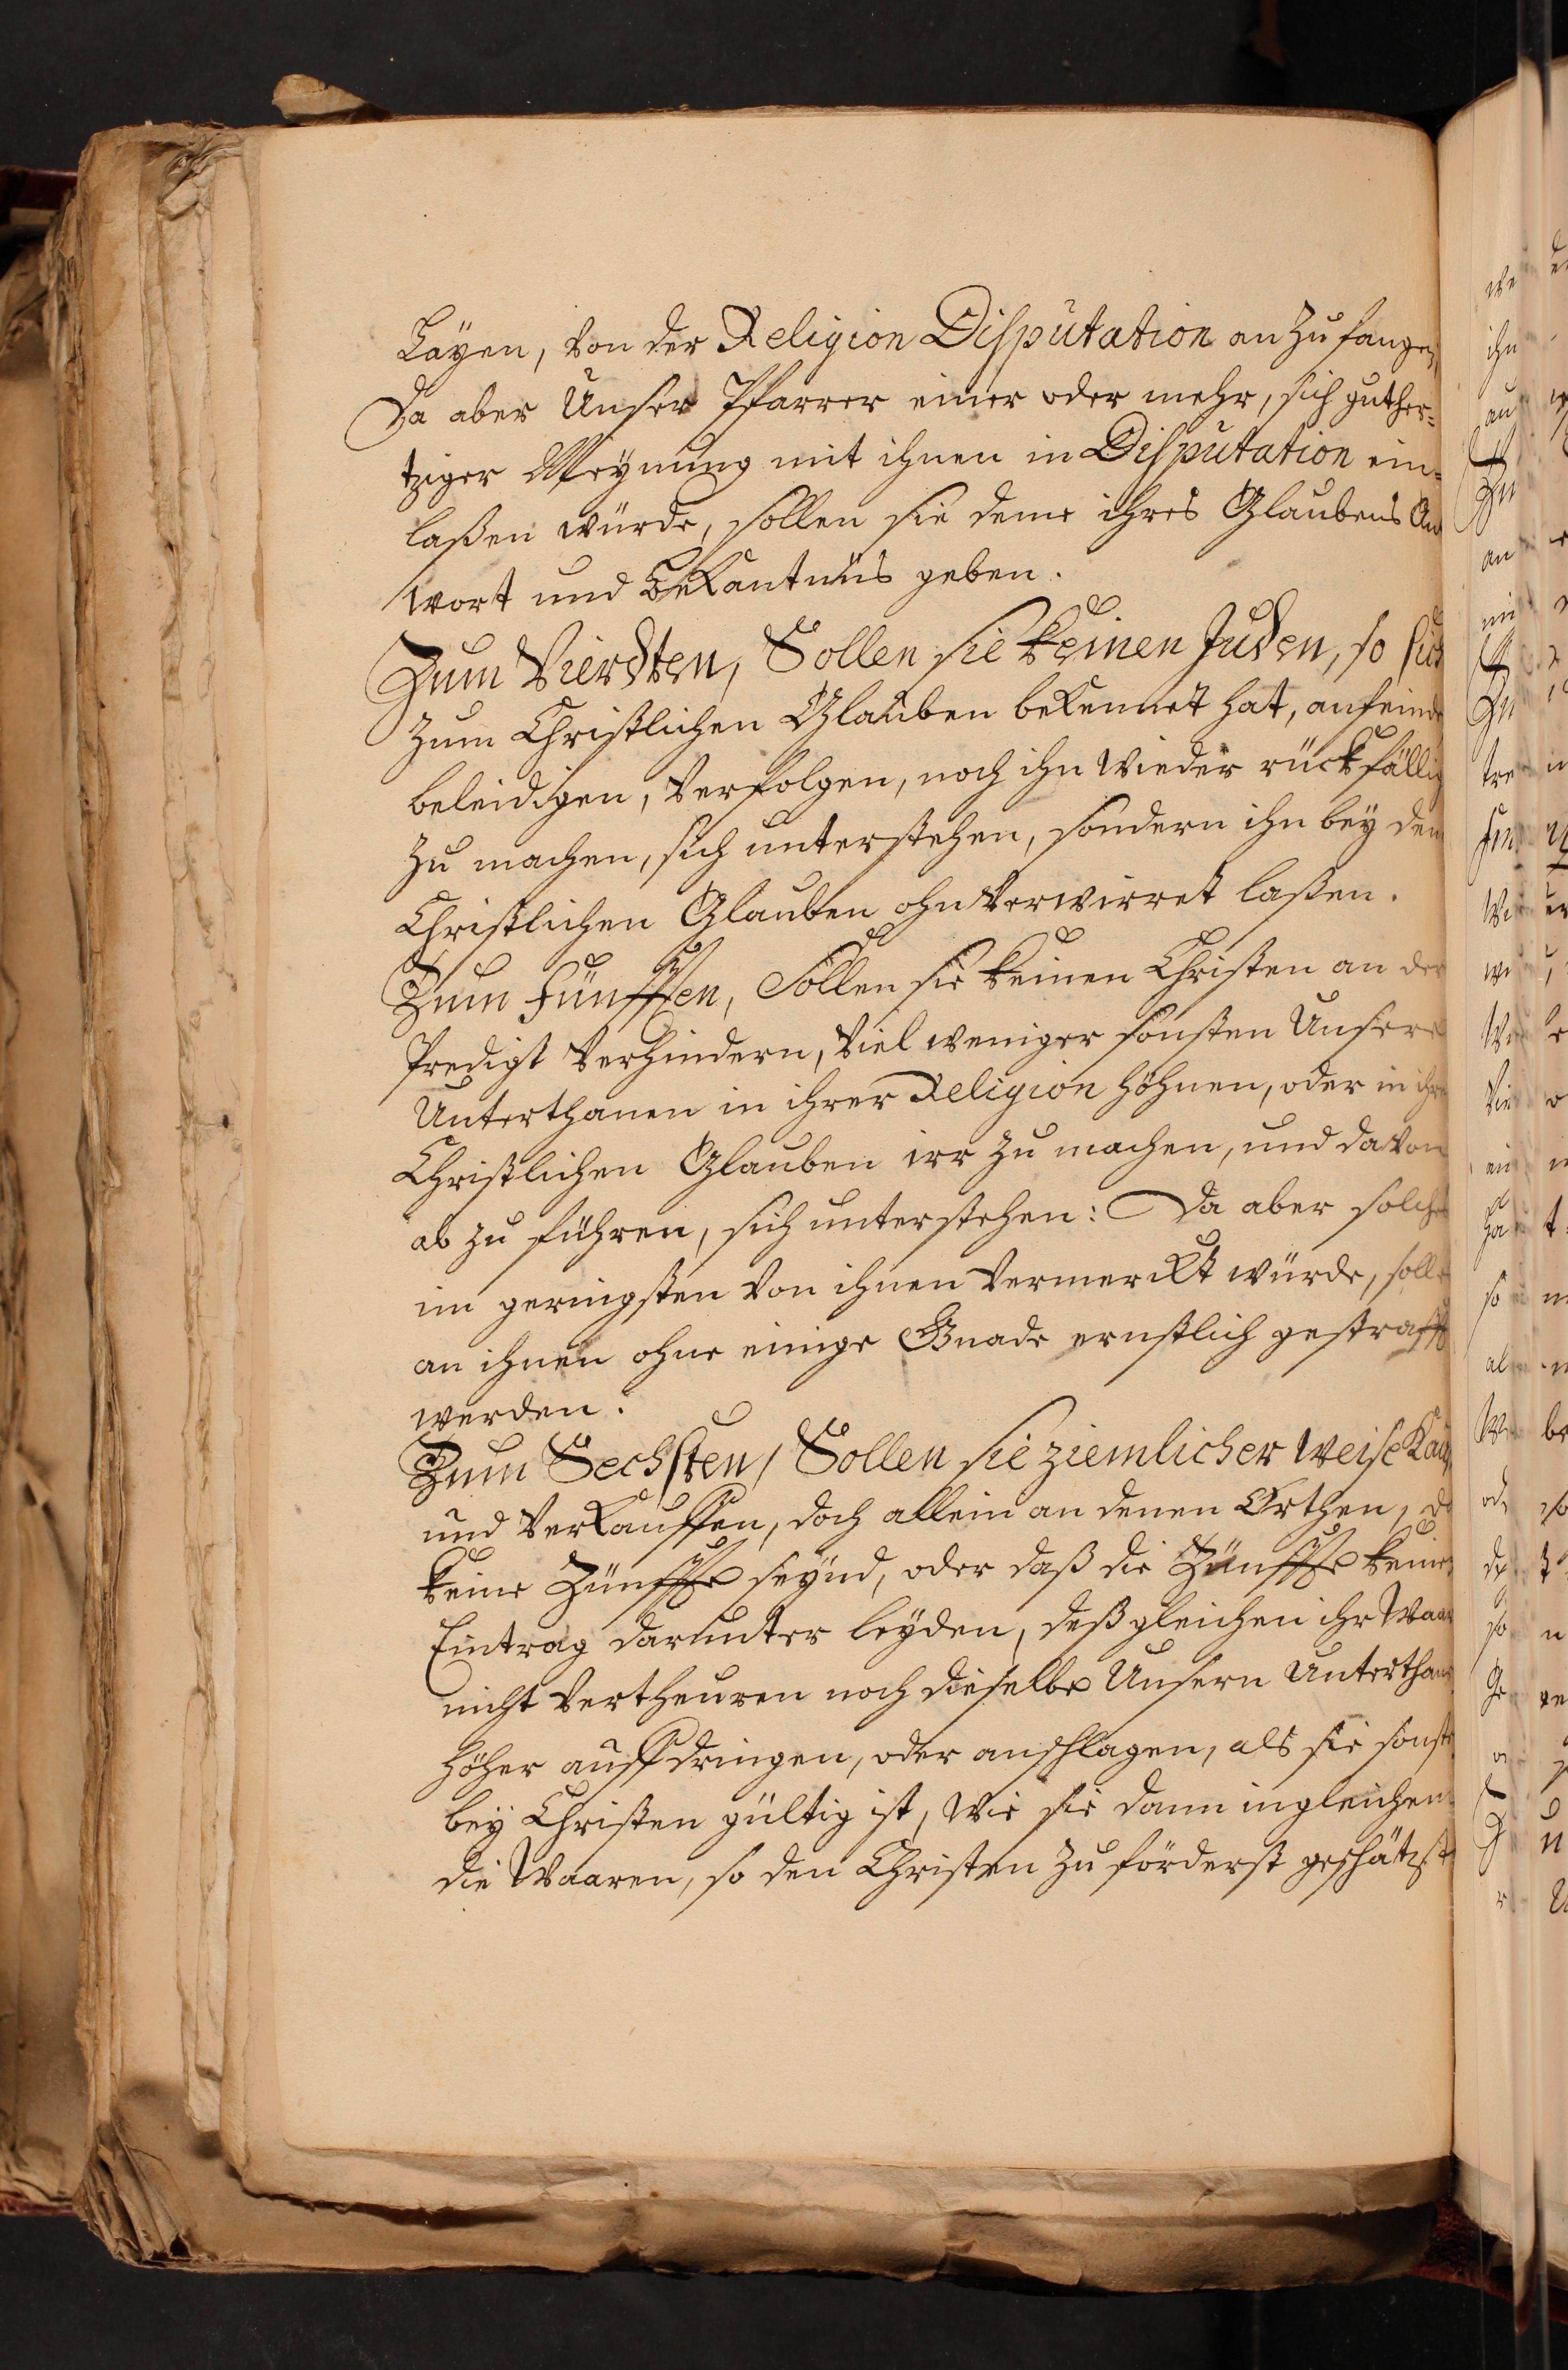 Layen, von der Religion Disputation anzufangen,
Da aber Unser Pfarrer einer oder mehr, sich guther-
tziger Meynung mit ihnen in Disputation ein-
laßen würde, sollen sie deme ihres Glaubens Ant
wort und Bekantnüs geben.
Zum Vierdten, Sollen sie keinen Juden, so sich
zum Christlichen Glauben bekennet hat, anfeinde
beleidigen, verfolgen, noch ihn wieder rückfällig
zu machen, sich unterstehen, sondern ihn bey dem
Christlichen Glauben ohnverwirret laßen.
Zum Fünfften, Sollen sie keinen Christen an der
Predigt verhindern, viel weniger sonsten Unsere
Unterthanen in ihrer Religion höhnen, oder in ihre
Christlichen Glauben irr zu machen, und davon
ab zu führen, sich unterstehen: Da aber solches
im geringsten von ihnen vermerckt würde, solle
an ihnen ohne einige Gnade ernstlich gestrafft
werden.
Zum Sechsten, Sollen sie ziemlicher weise Kau
und verkauffen, doch allein an denen Orthen, da
keine Zünffte seynd, oder daß die Zünffte keinen
Eintrag darunter leyden, deßgleichen ihr Waar
nicht vertheuren noch dieselbe Unsern Unterthanen
höher auffdringen, oder anschlagen, als sie sonste
bey Christen gültig ist, Wie sie dann ingleichen
die Waaren, so den Christen zu förderst geschätzt